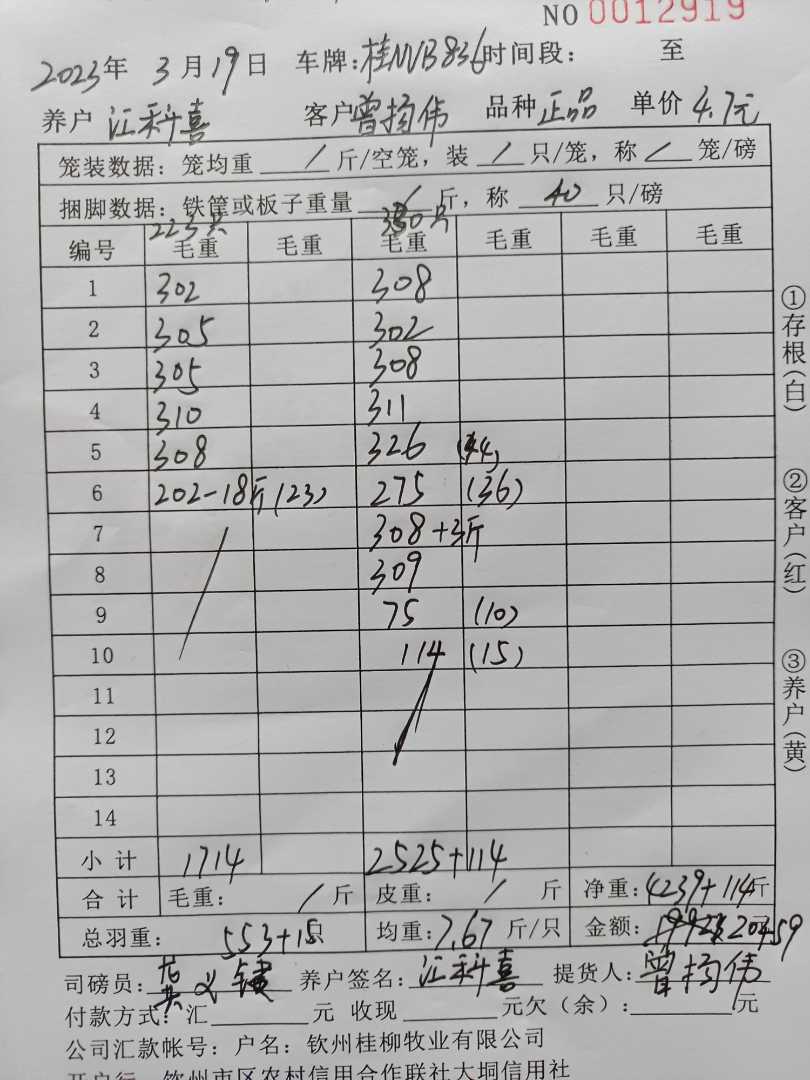 NO 0012919
2023年 3月19日 车牌:桂NVB836时间段: 至
养户 江科喜 客户曾扬伟 品种正品 单价4.7元
笼装数据:笼均重 / 斤/空笼,装 / 只/笼,称 / 笼/磅
捆脚数据:铁管或板子重量 / 斤,称 40 只/磅
223只 330只
编号 毛重 毛重 毛重 毛重 毛重 毛重
1 302 308
2 305 302
3 305 308
4 310 311
5 308 326 (44)
6 202-18斤(23) 275 (36)
7 308+3斤
8 309
9 75 (10)
10 114 (15)
11
12
13
14
小计 1714 2525+114
合计 毛重: / 斤 皮重: / 斤 净重:4239+114斤
总羽重: 553+15只 均重:7.67 斤/只 金额: 20459
司磅员: 养户签名:江科喜 提货人:曾扬伟
付款方式:汇 元 收现 元欠(余): 元
公司汇款帐号:户名:钦州桂柳牧业有限公司
开户行 钦州市区农村信用合作联社大垌信用社
①存根(白)
②客户(红)
③养户(黄)